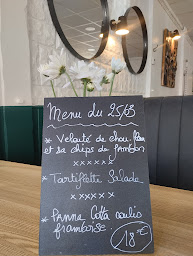 Menu du 25/03
* Velouté de chou fleur
et sa chips de jambon
x x x x x x
* Tartiflette Salade
x x x x x x
* Panna Cotta coulis
framboise
18€